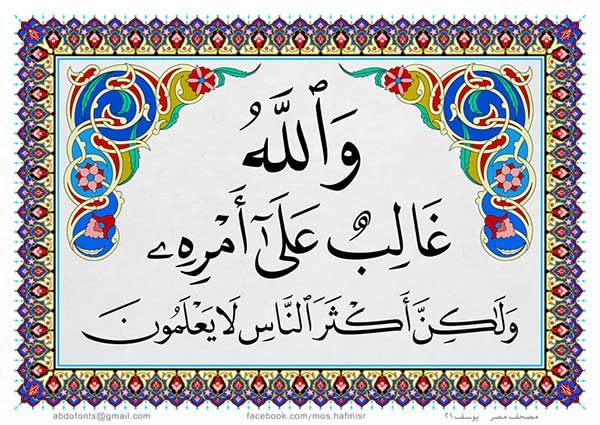 وَٱللَّهُ
غَالِبٌ عَلَىٰٓ أَمْرِهِۦ
وَلَـٰكِنَّ أَكْثَرَ ٱلنَّاسِ لَا يَعْلَمُونَ
مصحف مصر يوسف ٢١
facebook.com/mos.hafmisr
abdofonts@gmail.com